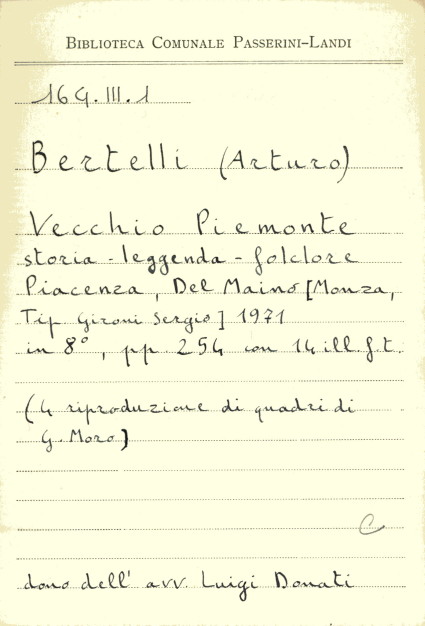 BIBLIOTECA COMUNALE PASSERINI-LANDI
16 G. III. 1
Bertelli (Arturo)
Vecchio Piemonte
storia - leggenda - folclore
Piacenza, Del Maino [Monza,
Tip. Gironi Sergio] 1971
in 8°, pp. 254 con 14 ill. f. t.
(4 riproduzione di quadri di
G. Moro)
C
dono dell' avv. Luigi Donati